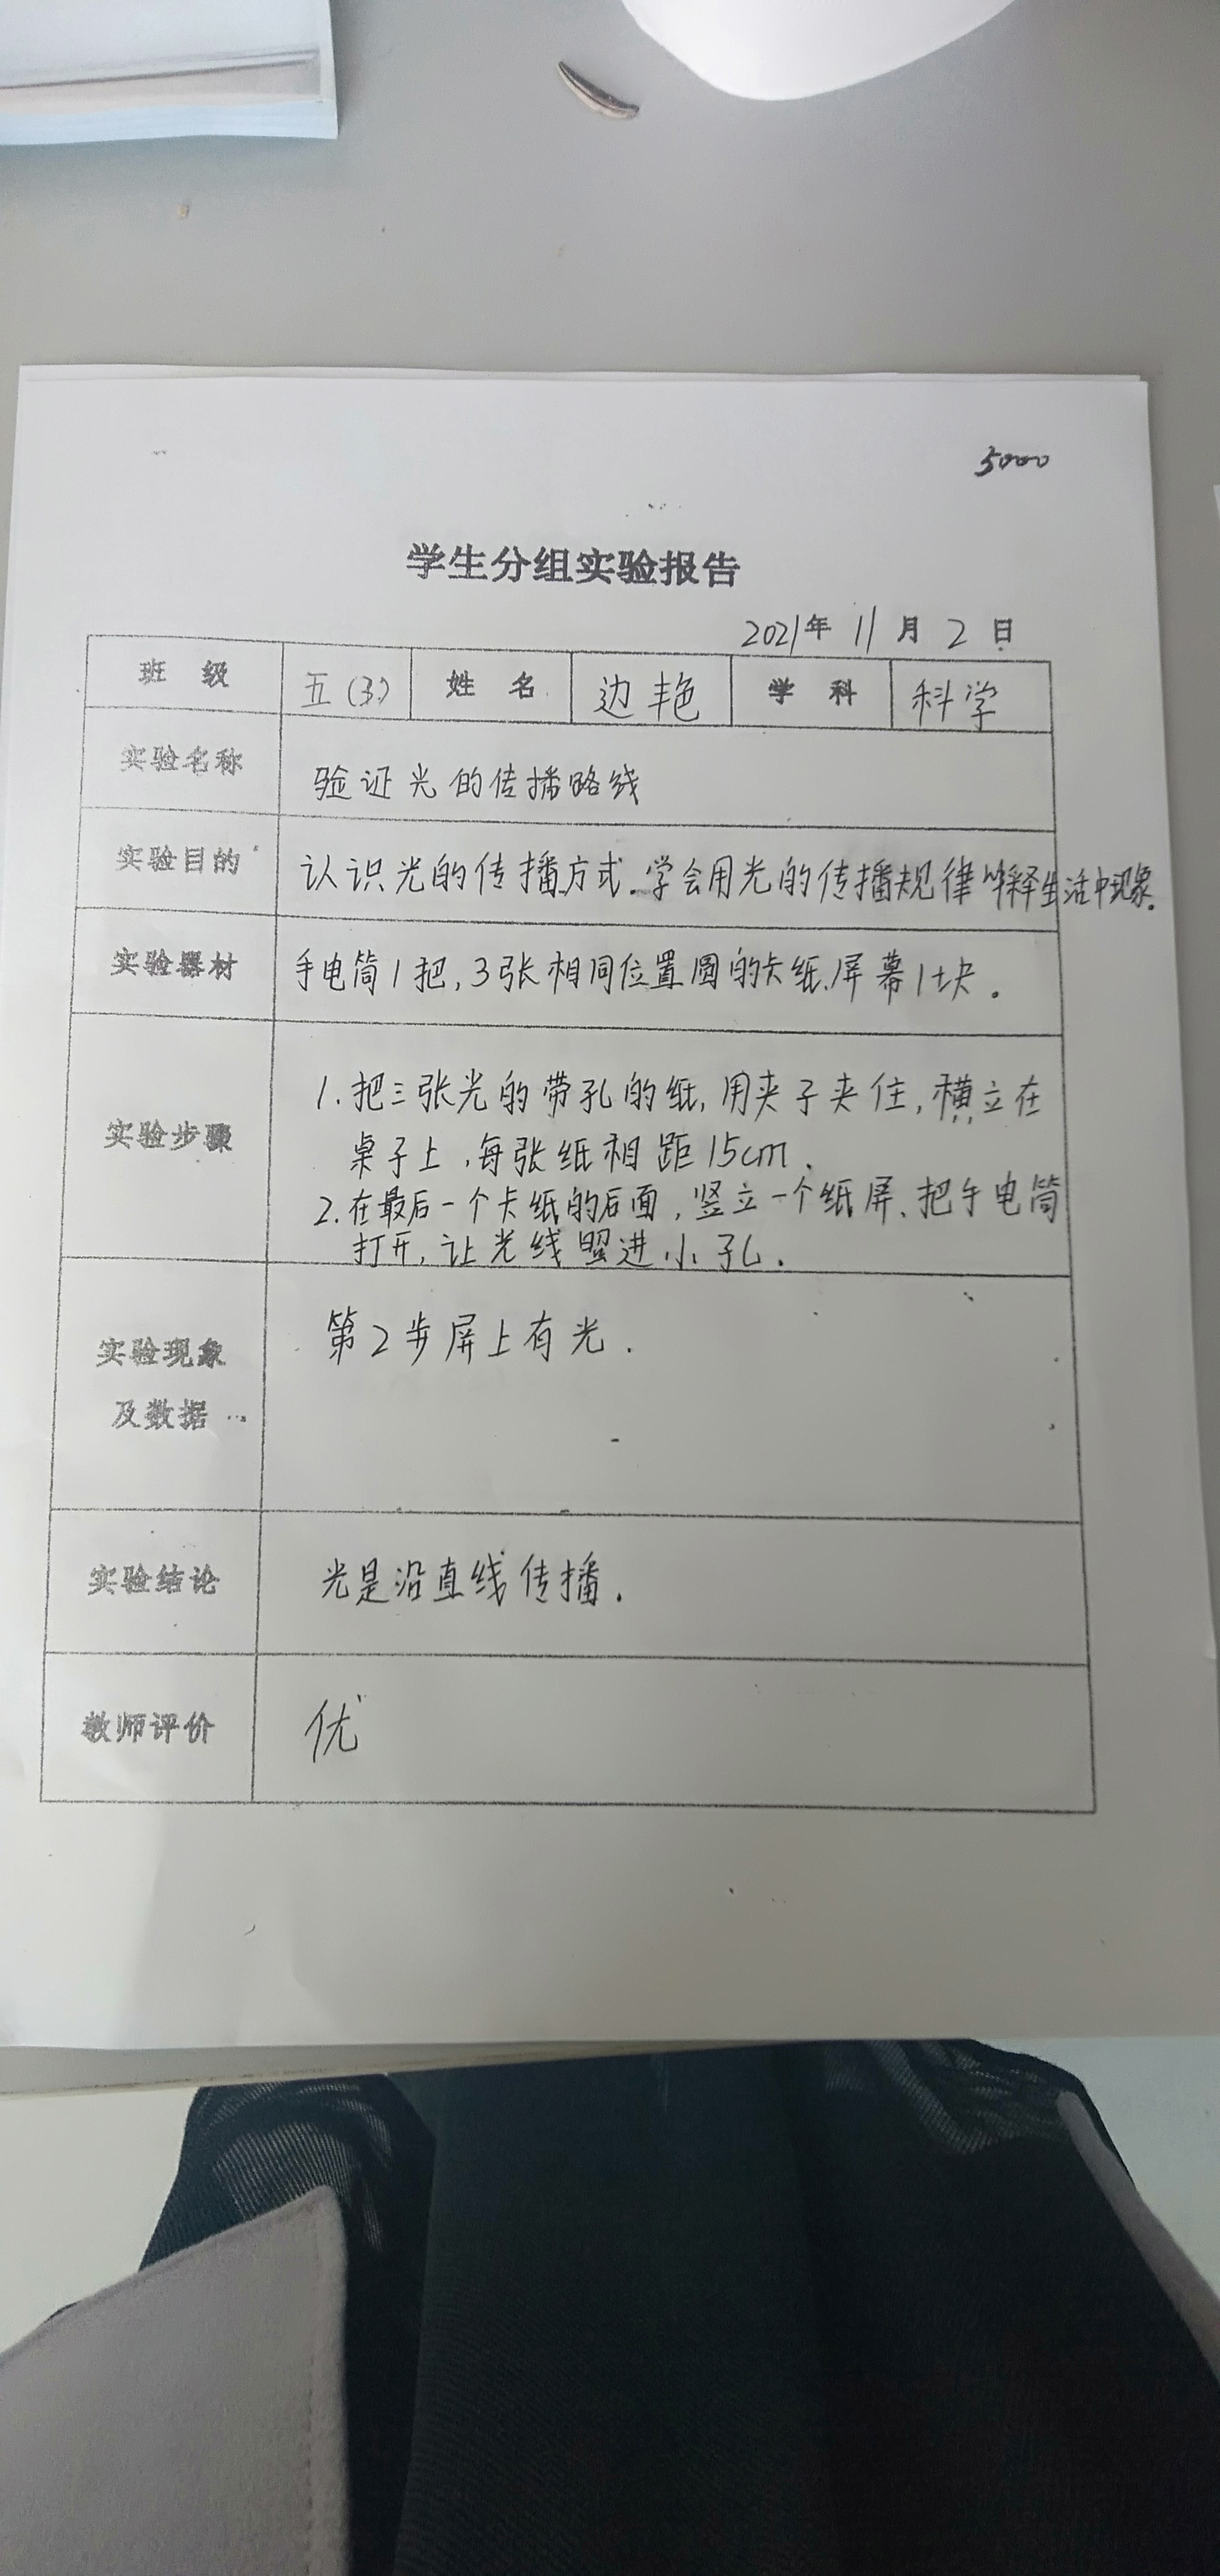 5000
学生分组实验报告
2021年 11月 2日
班 级 五(3) 姓 名 边艳 学 科 科学
实验名称 验证光的传播路线
实验目的 认识光的传播方式.学会用光的传播规律解释生活中现象.
实验器材 手电筒1把,3张相同位置圆的卡纸、屏幕1块.
实验步骤
1.把三张光的带孔的纸,用夹子夹住,横立在
桌子上,每张纸相距15cm.
2.在最后一个卡纸的后面,竖立一个纸屏、把手电筒
打开,让光线照进小孔.
实验现象
及数据
第2步屏上有光.
实验结论 光是沿直线传播.
教师评价 优